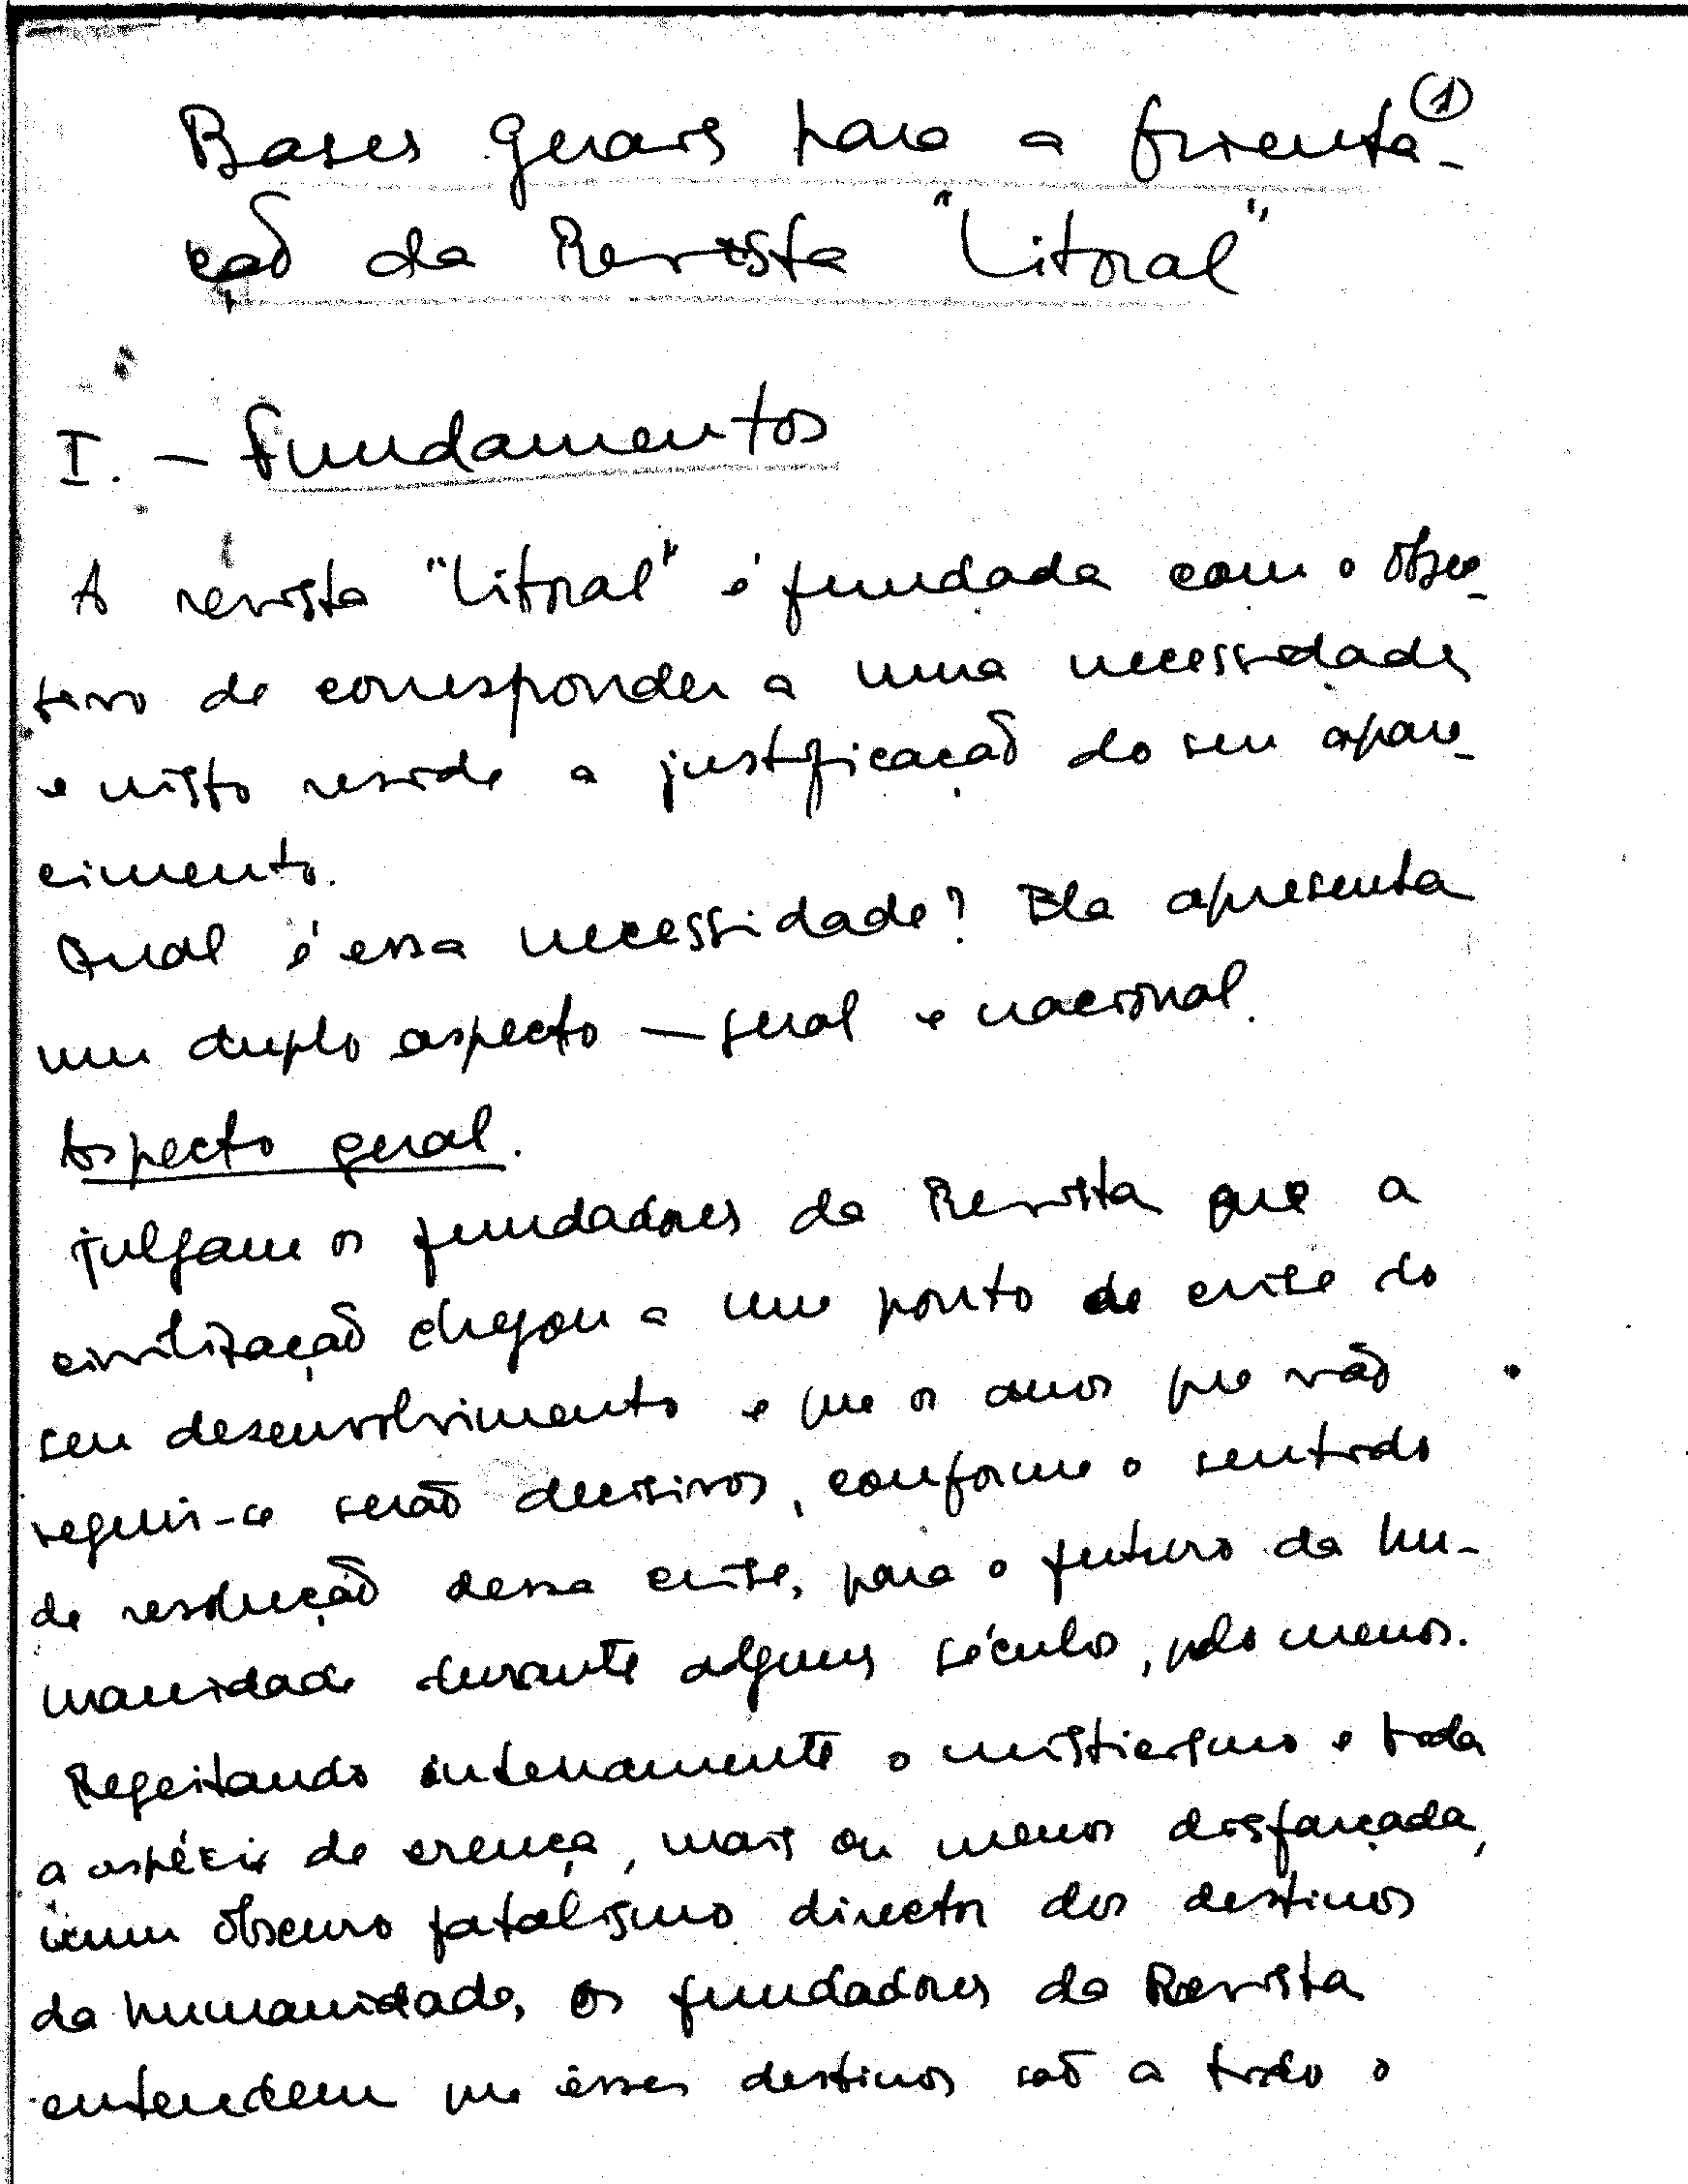 ①
Bases gerais para a orienta-
ção da Revista "Litoral"
I. — Fundamentos
A revista "Litoral" é fundada com o objec-
tivo de corresponder a uma necessidade
e nisto reside a justificação do seu apare-
cimento.
Qual é essa necessidade? Ela apresenta
um duplo aspecto — geral e nacional.
Aspecto geral.
Julgam os fundadores da Revista que a
civilização chegou a um ponto de crise do
seu desenvolvimento e que os anos que vão
seguir-se serão decisivos, conforme o sentido
de resolução dessa crise, para o futuro da hu-
manidade durante alguns séculos, pelo menos.
Regeitando inteiramente o misticismo e toda
a espécie de crença, mais ou menos disfarçada,
num obscuro fatalismo director dos destinos
da humanidade, os fundadores da Revista
entendem que êsses destinos são a todo o